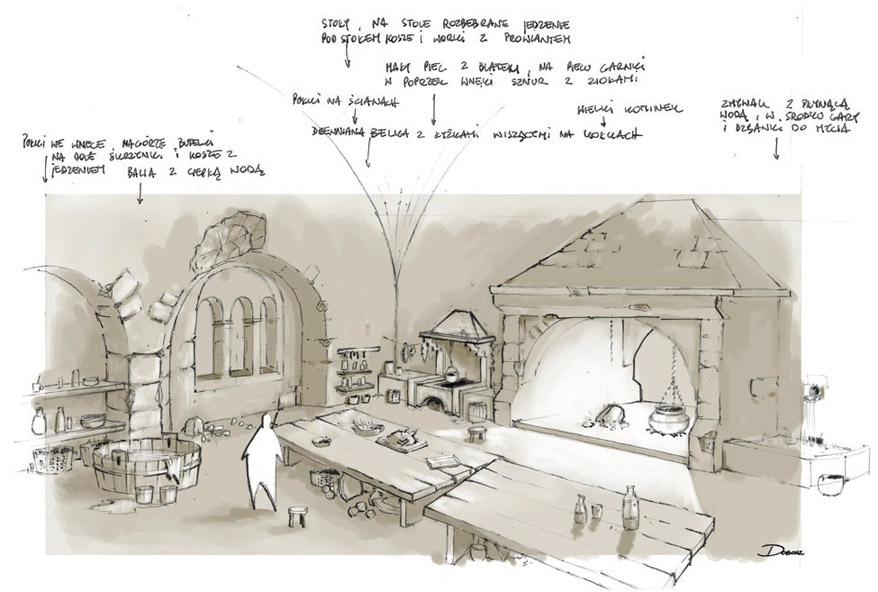 STOŁY, NA STOLE ROZBEBRANE JEDZENIE
POD STOŁEM KOSZE I WORKI Z PROWIANTEM
MAŁY PIEC Z BLATEM, NA PIECU GARNKI
W POPRZEK WNĘKI SZNUR Z ZIOŁAMI
PÓŁKI NA ŚCIANACH
WIELKI KOMINEK
DREWNIANA BELKA Z ŁYŻKAMI WISZĄCYMI NA KOŁKACH
ZMYWAK Z PŁYNĄCĄ
WODĄ, W ŚRODKU GARY
I DZBANKI DO MYCIA
PÓŁKI WE WNĘCE, NA GÓRZE BUTELKI
NA DOLE SKRZYNKI I KOSZE Z
JEDZENIEM
BALIA Z CIEPŁĄ WODĄ